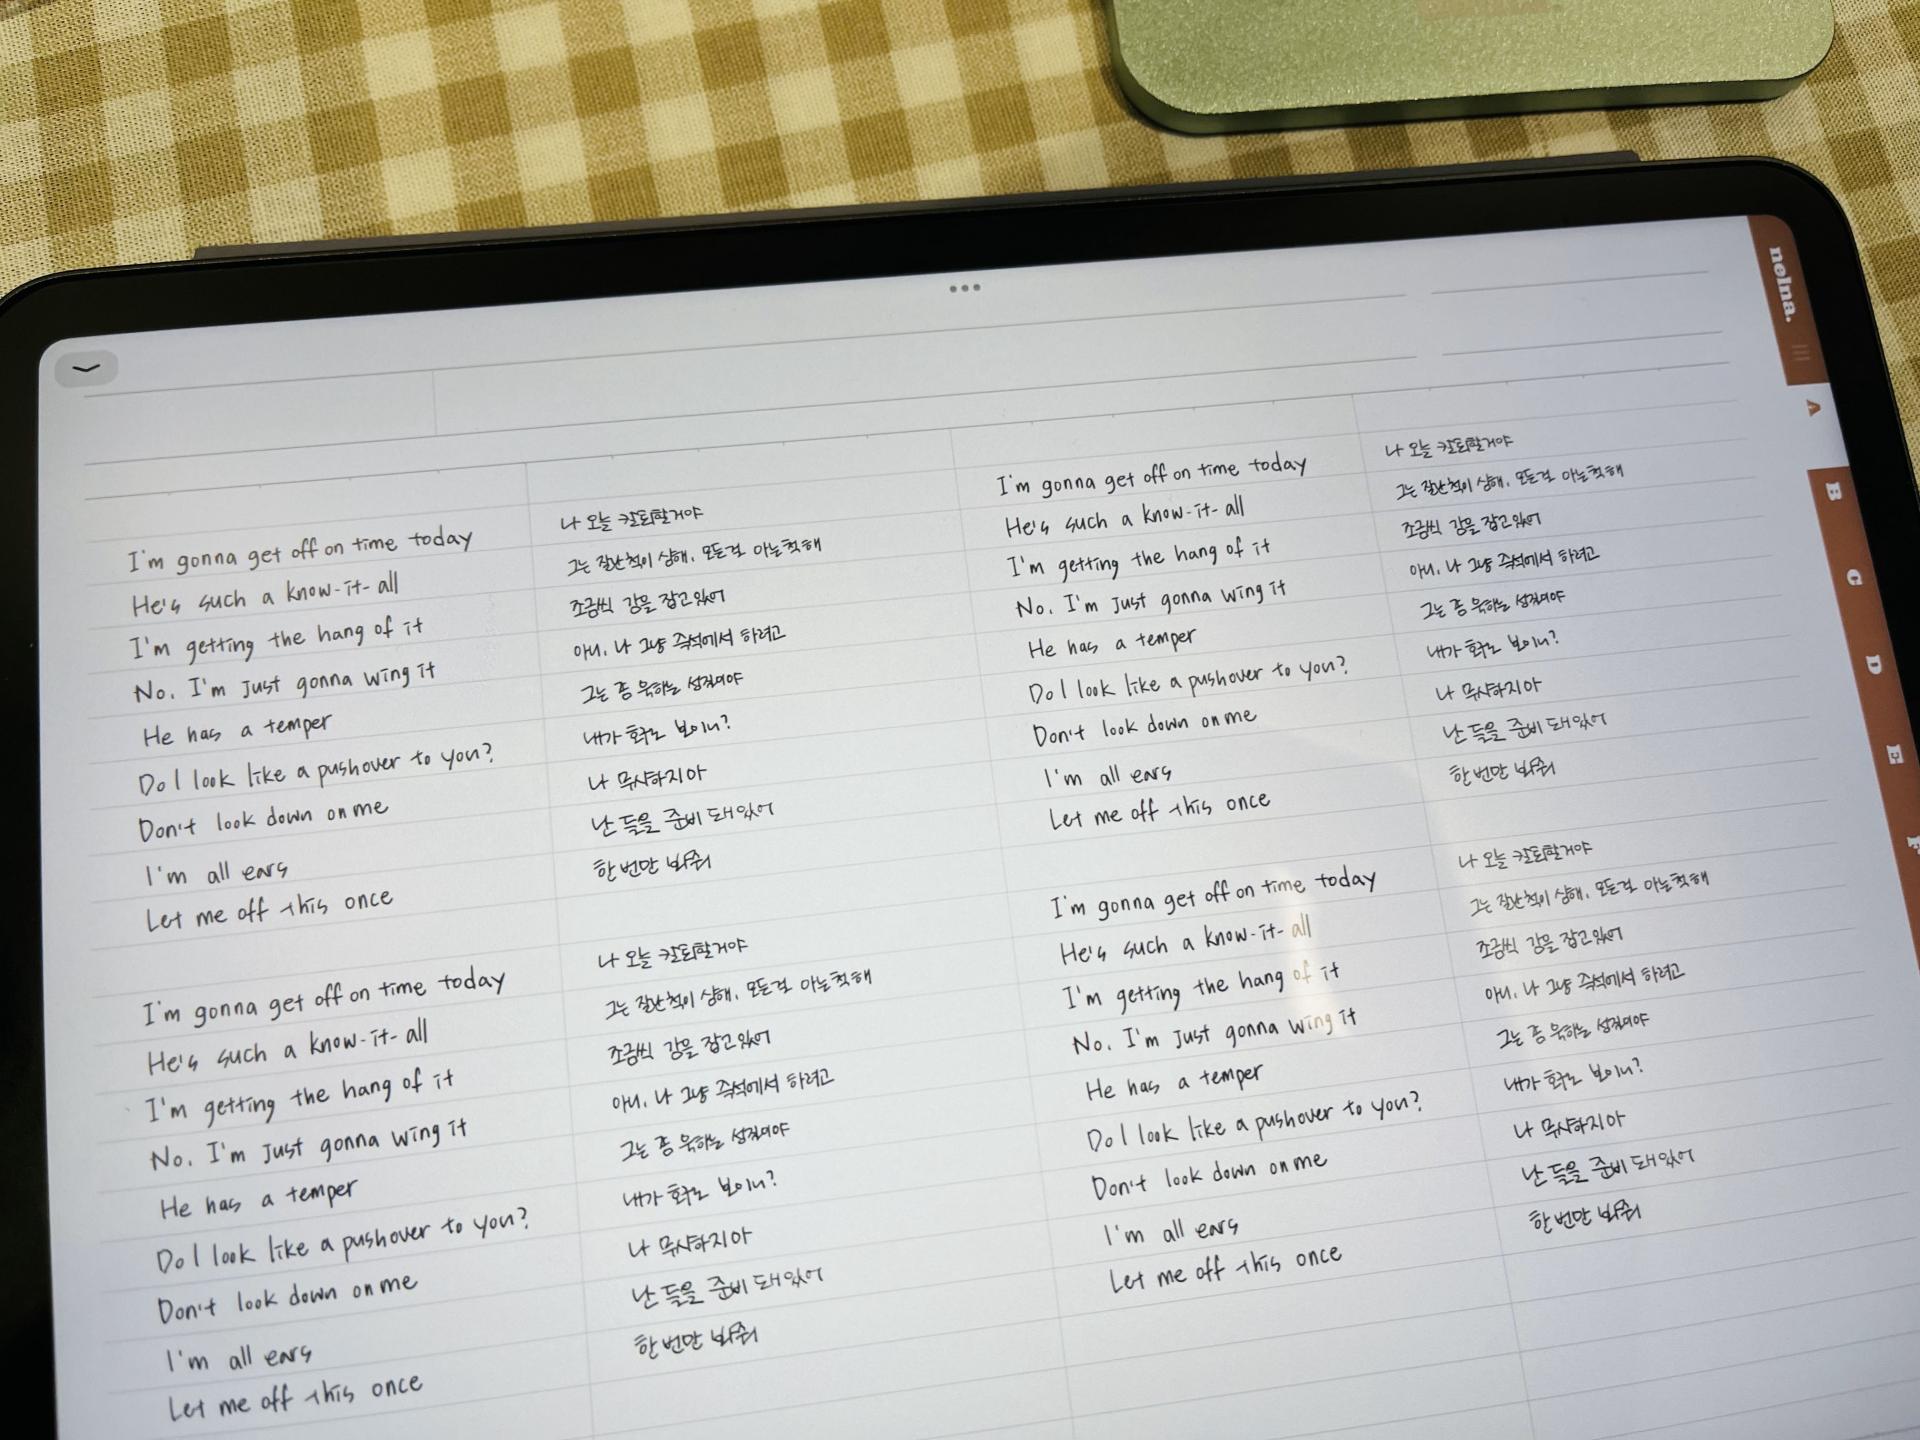 nelna.
A
B
C
D
E
F
I'm gonna get off on time today
He's such a know-it-all
I'm getting the hang of it
No. I'm just gonna wing it
He has a temper
Do I look like a pushover to you?
Don't look down on me
I'm all ears
Let me off this once
나 오늘 칼퇴할거야
그는 잘난척이 심해. 모든걸 아는척해
조금씩 감을 잡고있어
아니. 나 그냥 즉석에서 하려고
그는 좀 욱하는 성격이야
내가 호구로 보이니?
나 무시하지마
난 들을 준비 돼있어
한번만 봐줘
I'm gonna get off on time today
He's such a know-it-all
I'm getting the hang of it
No. I'm just gonna wing it
He has a temper
Do I look like a pushover to you?
Don't look down on me
I'm all ears
Let me off this once
나 오늘 칼퇴할거야
그는 잘난척이 심해. 모든걸 아는척해
조금씩 감을 잡고있어
아니. 나 그냥 즉석에서 하려고
그는 좀 욱하는 성격이야
내가 호구로 보이니?
나 무시하지마
난 들을 준비 돼있어
한번만 봐줘
I'm gonna get off on time today
He's such a know-it-all
I'm getting the hang of it
No. I'm just gonna wing it
He has a temper
Do I look like a pushover to you?
Don't look down on me
I'm all ears
Let me off this once
나 오늘 칼퇴할거야
그는 잘난척이 심해. 모든걸 아는척해
조금씩 감을 잡고있어
아니. 나 그냥 즉석에서 하려고
그는 좀 욱하는 성격이야
내가 호구로 보이니?
나 무시하지마
난 들을 준비 돼있어
한번만 봐줘
I'm gonna get off on time today
He's such a know-it-all
I'm getting the hang of it
No. I'm just gonna wing it
He has a temper
Do I look like a pushover to you?
Don't look down on me
I'm all ears
Let me off this once
나 오늘 칼퇴할거야
그는 잘난척이 심해. 모든걸 아는척해
조금씩 감을 잡고있어
아니. 나 그냥 즉석에서 하려고
그는 좀 욱하는 성격이야
내가 호구로 보이니?
나 무시하지마
난 들을 준비 돼있어
한번만 봐줘